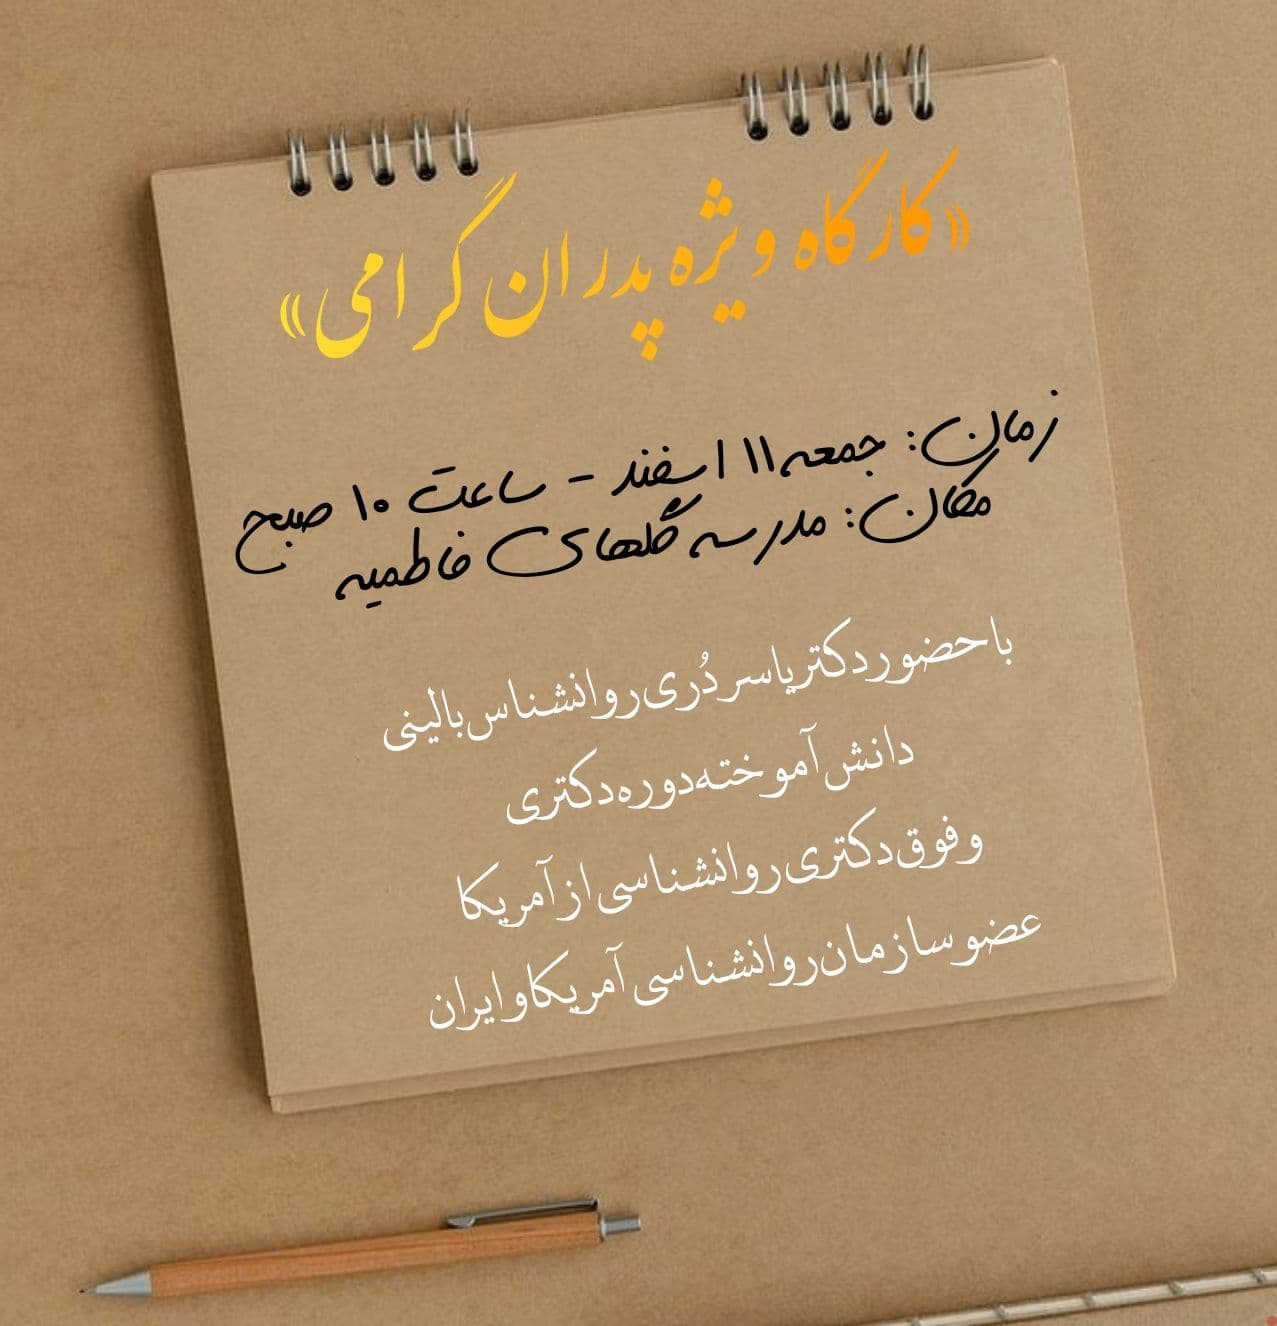 «کارگاه ویژه پدران گرامی»
زمان: جمعه ۱۱ اسفند - ساعت ۱۰ صبح
مکان: مدرسه گلهای فاطمیه
با حضور دکتر یاسر دُری روانشناس بالینی
دانش آموخته دوره دکتری
و فوق دکتری روانشناسی از آمریکا
عضو سازمان روانشناسی آمریکا و ایران